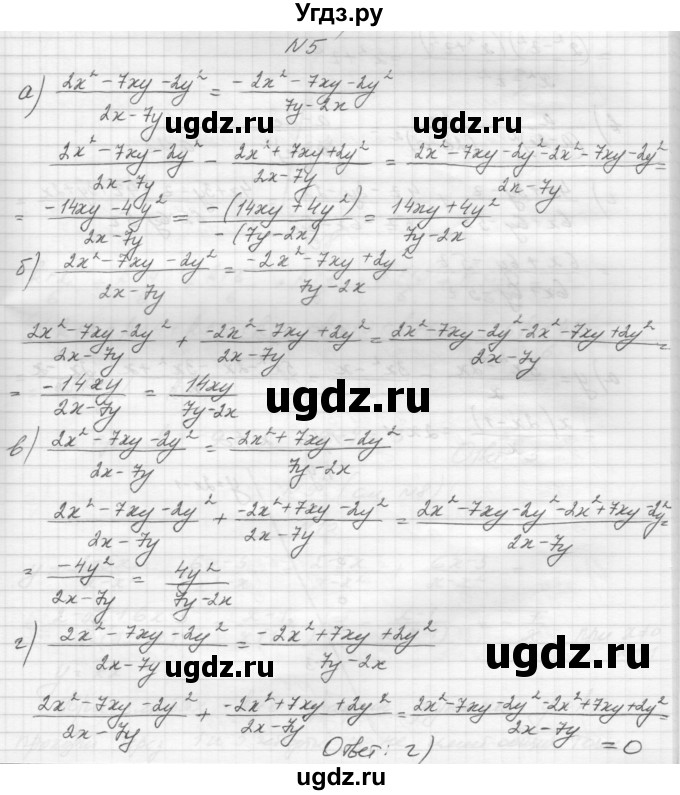 Угдз.ру
N5
а) (2x² - 7xy - 2y²)/(2x - 7y) = (-2x² - 7xy - 2y²)/(7y - 2x)
(2x² - 7xy - 2y²)/(2x - 7y) - (2x² + 7xy + 2y²)/(2x - 7y) = (2x² - 7xy - 2y² - 2x² - 7xy - 2y²)/(2x - 7y) =
= (-14xy - 4y²)/(2x - 7y) = (-(14xy + 4y²))/(-(7y - 2x)) = (14xy + 4y²)/(7y - 2x)
б) (2x² - 7xy - 2y²)/(2x - 7y) = (-2x² - 7xy + 2y²)/(7y - 2x)
(2x² - 7xy - 2y²)/(2x - 7y) + (-2x² - 7xy + 2y²)/(2x - 7y) = (2x² - 7xy - 2y² - 2x² - 7xy + 2y²)/(2x - 7y) =
= (-14xy)/(2x - 7y) = (14xy)/(7y - 2x)
в) (2x² - 7xy - 2y²)/(2x - 7y) = (-2x² + 7xy - 2y²)/(7y - 2x)
(2x² - 7xy - 2y²)/(2x - 7y) + (-2x² + 7xy - 2y²)/(2x - 7y) = (2x² - 7xy - 2y² - 2x² + 7xy - 2y²)/(2x - 7y) =
= (-4y²)/(2x - 7y) = (4y²)/(7y - 2x)
г) (2x² - 7xy - 2y²)/(2x - 7y) = (-2x² + 7xy + 2y²)/(7y - 2x)
(2x² - 7xy - 2y²)/(2x - 7y) + (-2x² + 7xy + 2y²)/(2x - 7y) = (2x² - 7xy - 2y² - 2x² + 7xy + 2y²)/(2x - 7y) =
= 0
Ответ: г)
ugdz.ru
ugdz.ru
ugdz.ru
ugdz.ru
ugdz.ru
ugdz.ru
ugdz.ru